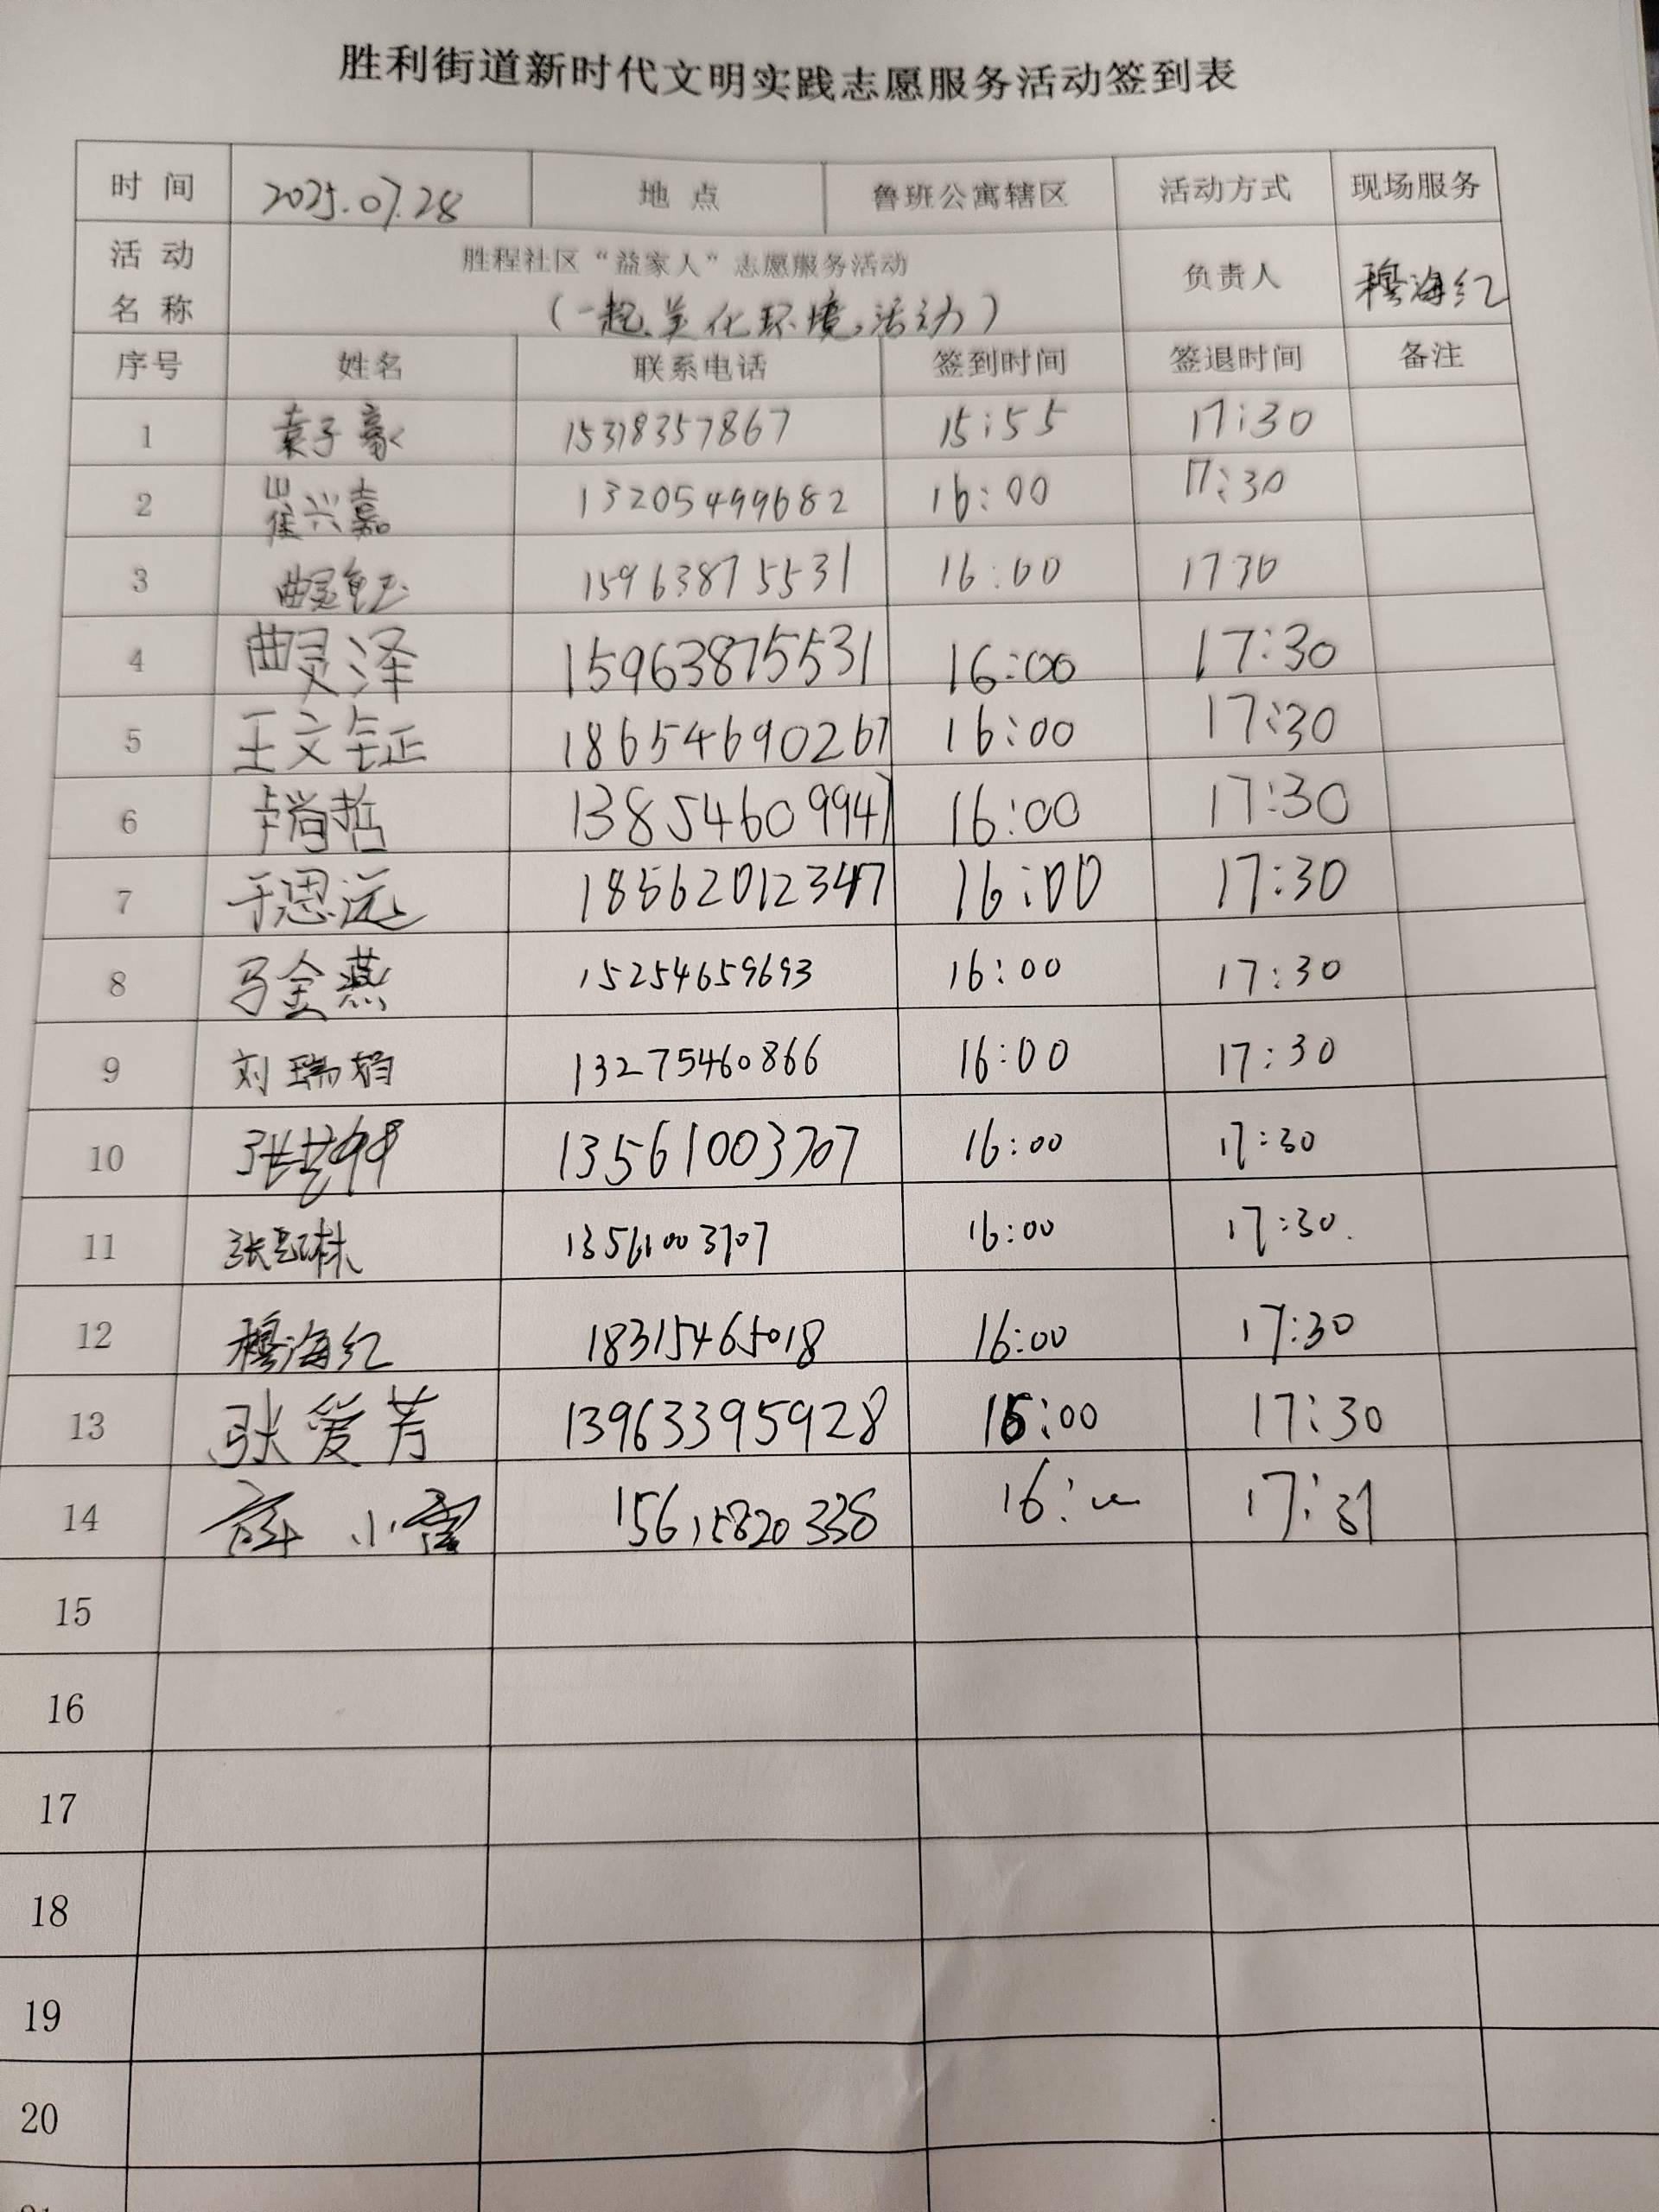 胜利街道新时代文明实践志愿服务活动签到表
时 间 2025.07.28 地 点 鲁班公寓辖区 活动方式 现场服务
活 动 名 称 胜程社区“益家人”志愿服务活动 负责人 穆海红
(一起美化环境活动)
序号 姓名 联系电话 签到时间 签退时间 备注
1 袁子豪 15318357867 15:55 17:30
2 崔兴嘉 13205499682 16:00 17:30
3 15963875531 16:00 1730
4 曲灵泽 15963875531 16:00 17:30
5 王文钲 18654690267 16:00 17:30
6 卢尚哲 13854609947 16:00 17:30
7 于恩远 18562012347 16:00 17:30
8 马金燕 15254659693 16:00 17:30
9 刘瑞娟 13275460866 16:00 17:30
10 13561003707 16:00 17:30
11 13561003707 16:00 17:30
12 穆海红 18315465018 16:00 17:30
13 张爱芳 13963395928 16:00 17:30
14 薛小雷 15615820338 16: 17:31
15
16
17
18
19
20